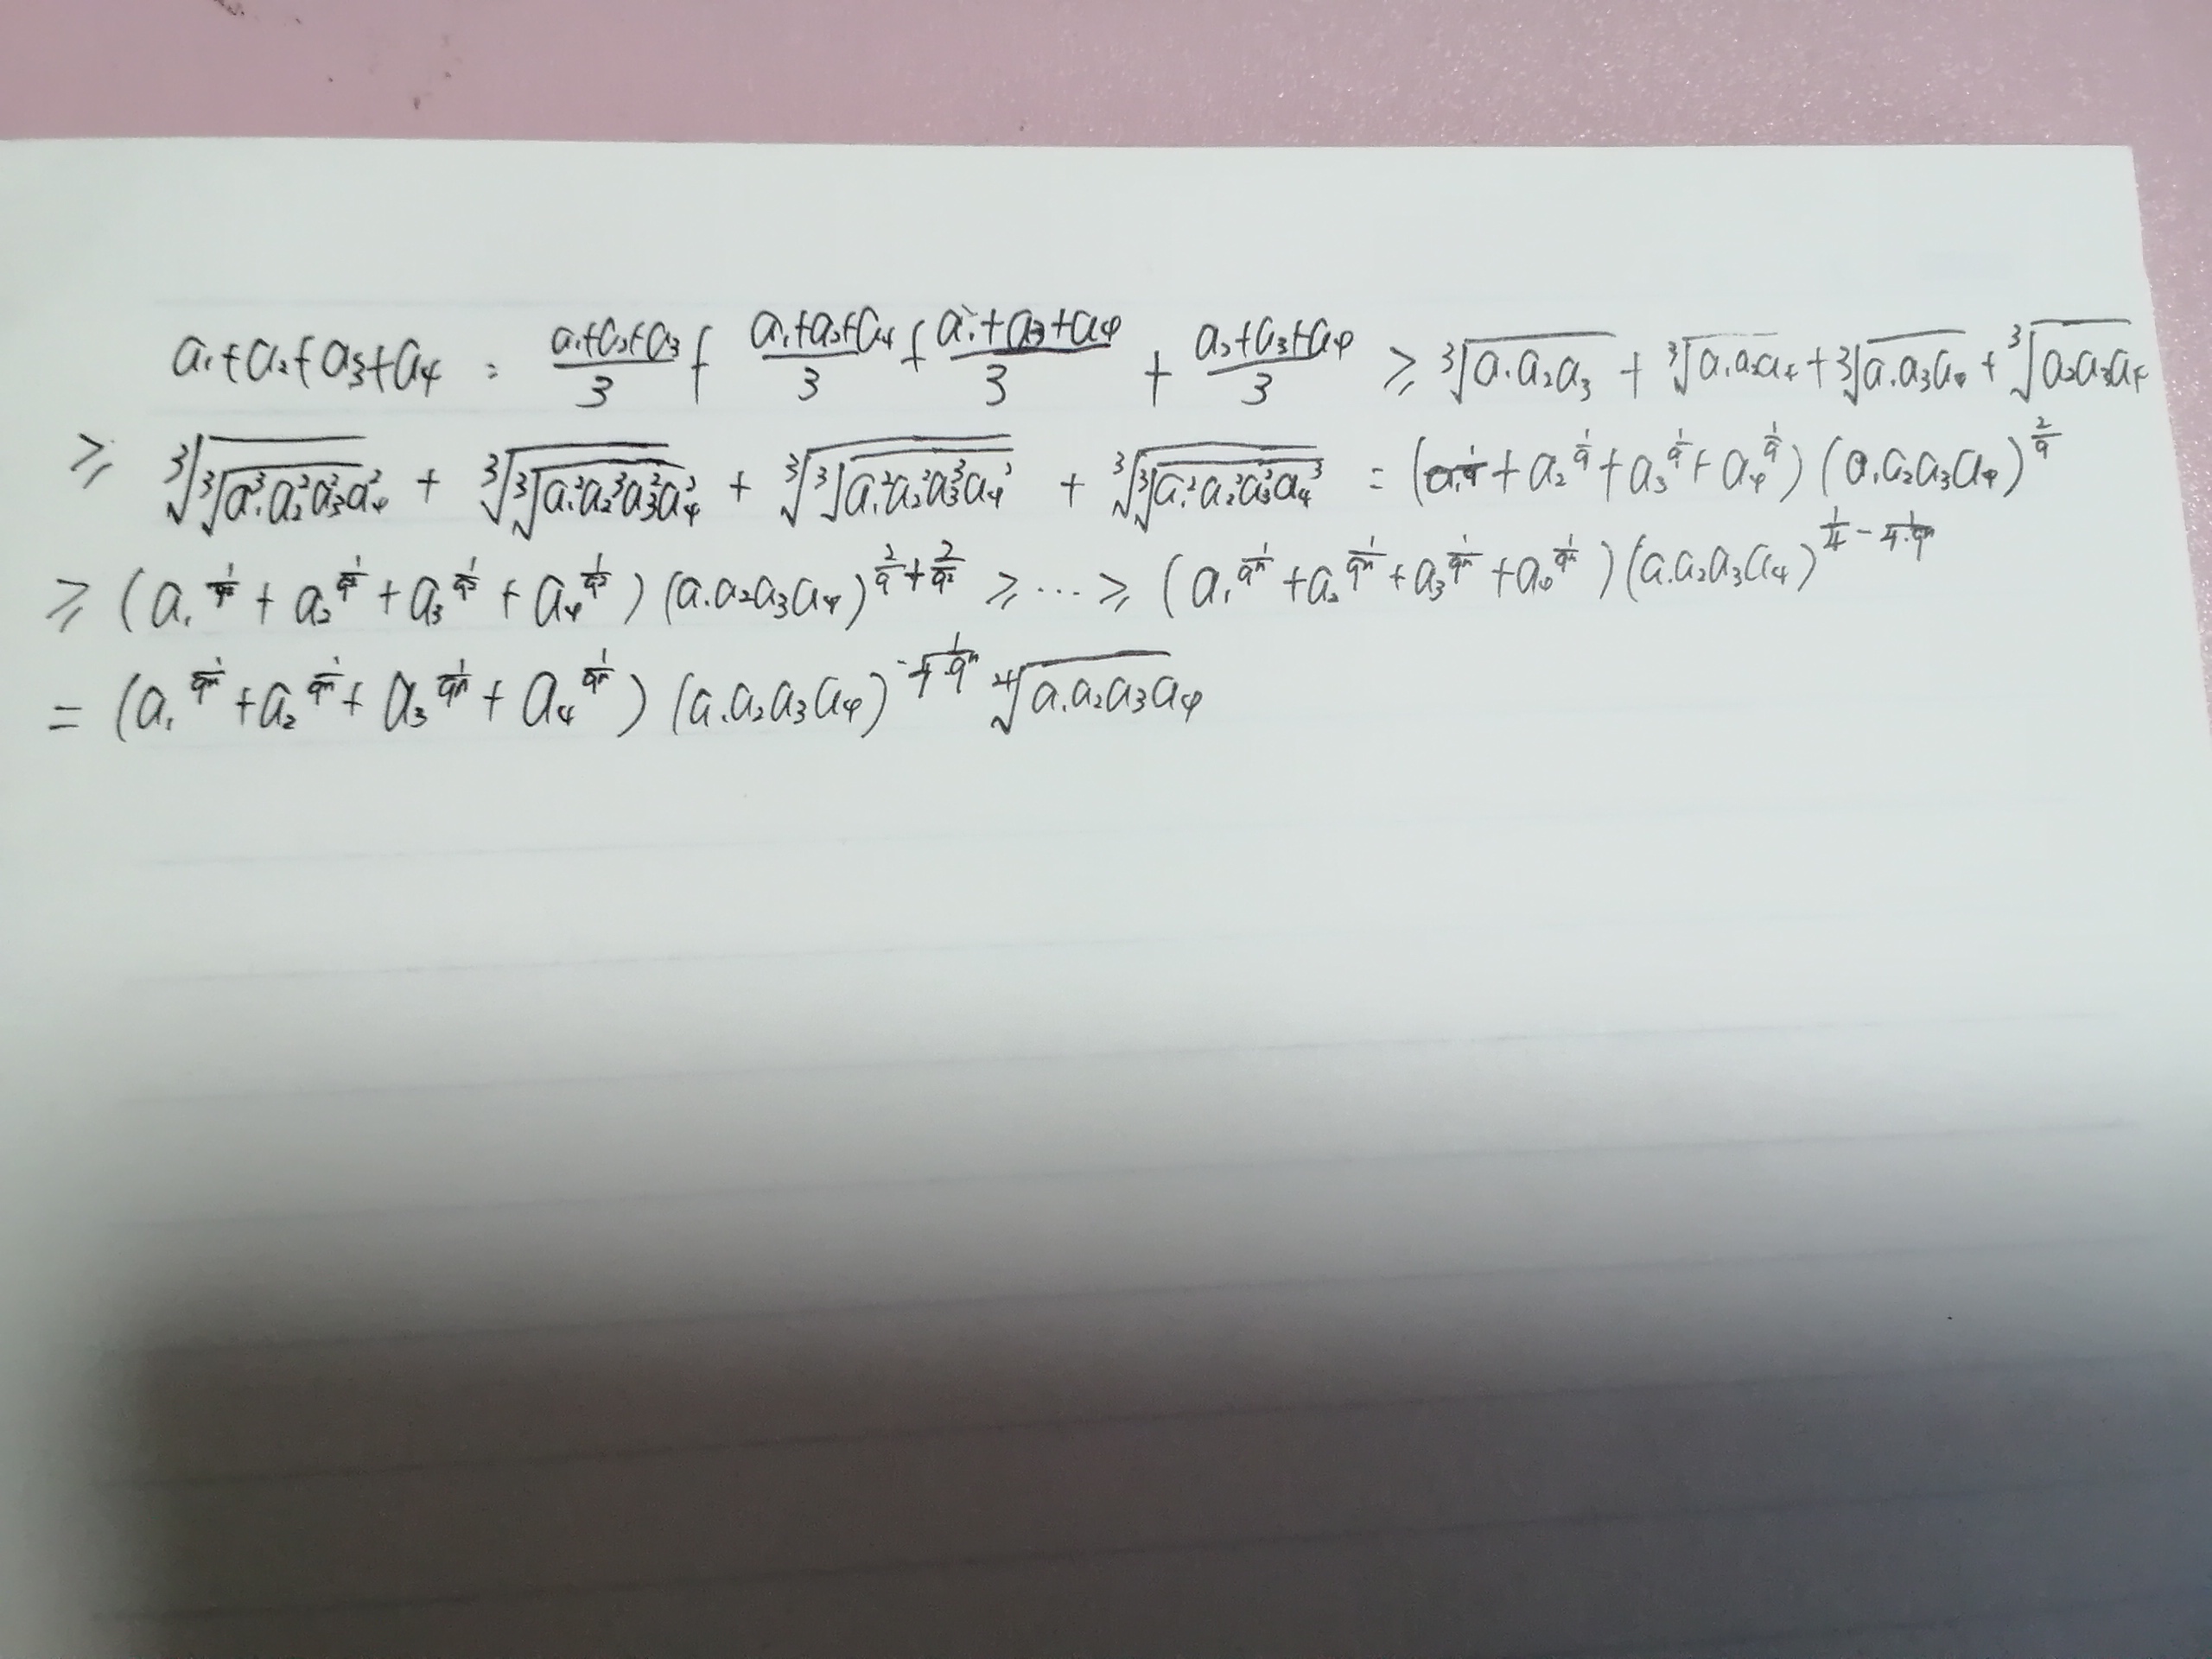 a₁+a₂+a₃+a₄ = (a₁+a₂+a₃)/3 + (a₁+a₂+a₄)/3 + (a₁+a₃+a₄)/3 + (a₂+a₃+a₄)/3 ≥ ∛(a₁a₂a₃) + ∛(a₁a₂a₄) + ∛(a₁a₃a₄) + ∛(a₂a₃a₄)
≥ ∛(∛(a₁³a₂²a₃²a₄²)) + ∛(∛(a₁²a₂³a₃²a₄²)) + ∛(∛(a₁²a₂²a₃³a₄²)) + ∛(∛(a₁²a₂²a₃²a₄³)) = (a₁^(1/9) + a₂^(1/9) + a₃^(1/9) + a₄^(1/9)) (a₁a₂a₃a₄)^(2/9)
≥ (a₁^(1/9²) + a₂^(1/9²) + a₃^(1/9²) + a₄^(1/9²)) (a₁a₂a₃a₄)^(2/9+2/9²) ≥ ··· ≥ (a₁^(1/9ⁿ) + a₂^(1/9ⁿ) + a₃^(1/9ⁿ) + a₄^(1/9ⁿ)) (a₁a₂a₃a₄)^(1/4 − 1/(4·9ⁿ))
= (a₁^(1/9ⁿ) + a₂^(1/9ⁿ) + a₃^(1/9ⁿ) + a₄^(1/9ⁿ)) (a₁a₂a₃a₄)^(−1/(4·9ⁿ)) ∜(a₁a₂a₃a₄)